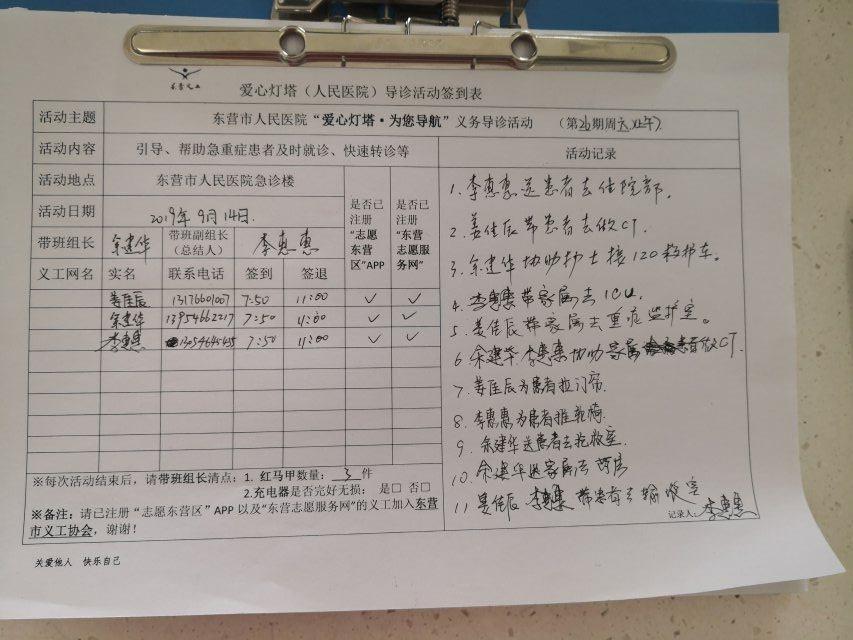 爱心灯塔（人民医院）导诊活动签到表
活动主题 东营市人民医院“爱心灯塔·为您导航”义务导诊活动 （第26期周六上午）
活动内容 引导、帮助急重症患者及时就诊、快速转诊等 活动记录
活动地点 东营市人民医院急诊楼
活动日期 2019年9月14日.
是否已注册“志愿东营区”APP
是否已注册“东营志愿服务网”
带班组长 余建华 带班副组长（总结人） 李惠惠
义工网名 实名 联系电话 签到 签退
姜佳辰 13176601007 7:50 11:00 ✓ ✓
余建华 13954662217 7:50 11:00 ✓ ✓
李惠惠 7:50 11:00 ✓ ✓
1.李惠惠送患者去住院部。
2.姜佳辰带患者去做CT.
3.余建华协助护士接120救护车。
4.李惠惠带家属去ICU.
5.姜佳辰带家属去重症监护室。
6 余建华 李惠惠协助家属 做CT.
7.姜佳辰为患者拉门帘
8.李惠惠为患者推轮椅
9.余建华送患者去抢救室.
10.余建华送家属去
11.姜佳辰 李惠惠带患者去输液室
记录人：李惠惠
※每次活动结束后，请带班组长清点：1. 红马甲数量：3件
2.充电器是否完好无损： 是□ 否□
※备注：请已注册“志愿东营区”APP以及“东营志愿服务网”的义工加入东营
市义工协会，谢谢！
关爱他人 快乐自己